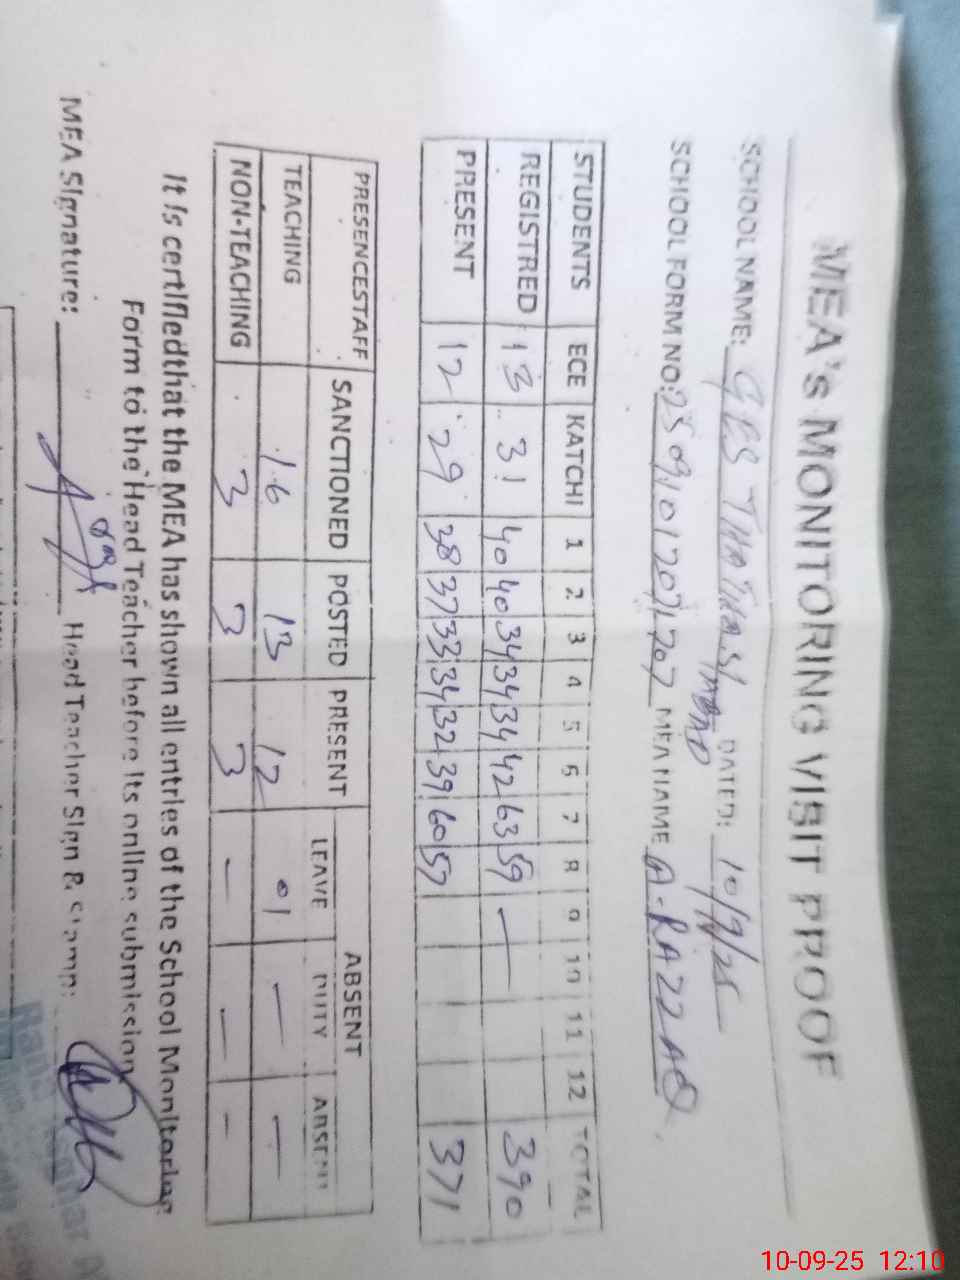 MEA's MONITORING VISIT PROOF
SCHOOL NAME: GES THATHA S/MOAD DATED: 10/9/25
SCHOOL FORM NO: 25091012071707 MEA NAME A. RAZZAQ
STUDENTS ECE KATCHI 1 2 3 4 5 6 7 8 9 10 11 12 TOTAL
REGISTRED 13 31 40 40 34 34 34 42 63 59 — 390
PRESENT 12 29 38 37 33 34 32 39 60 57 371
PRESENCESTAFF SANCTIONED POSTED PRESENT ABSENT
LEAVE DUTY ABSENT
TEACHING 16 13 12 01 — —
NON-TEACHING 3 3 3 — — —
It is certifiedthat the MEA has shown all entries of the School Monitoring
Form to the Head Teacher before its online submission
MEA Signature: Head Teacher Sign & Stamp:
10-09-25 12:10